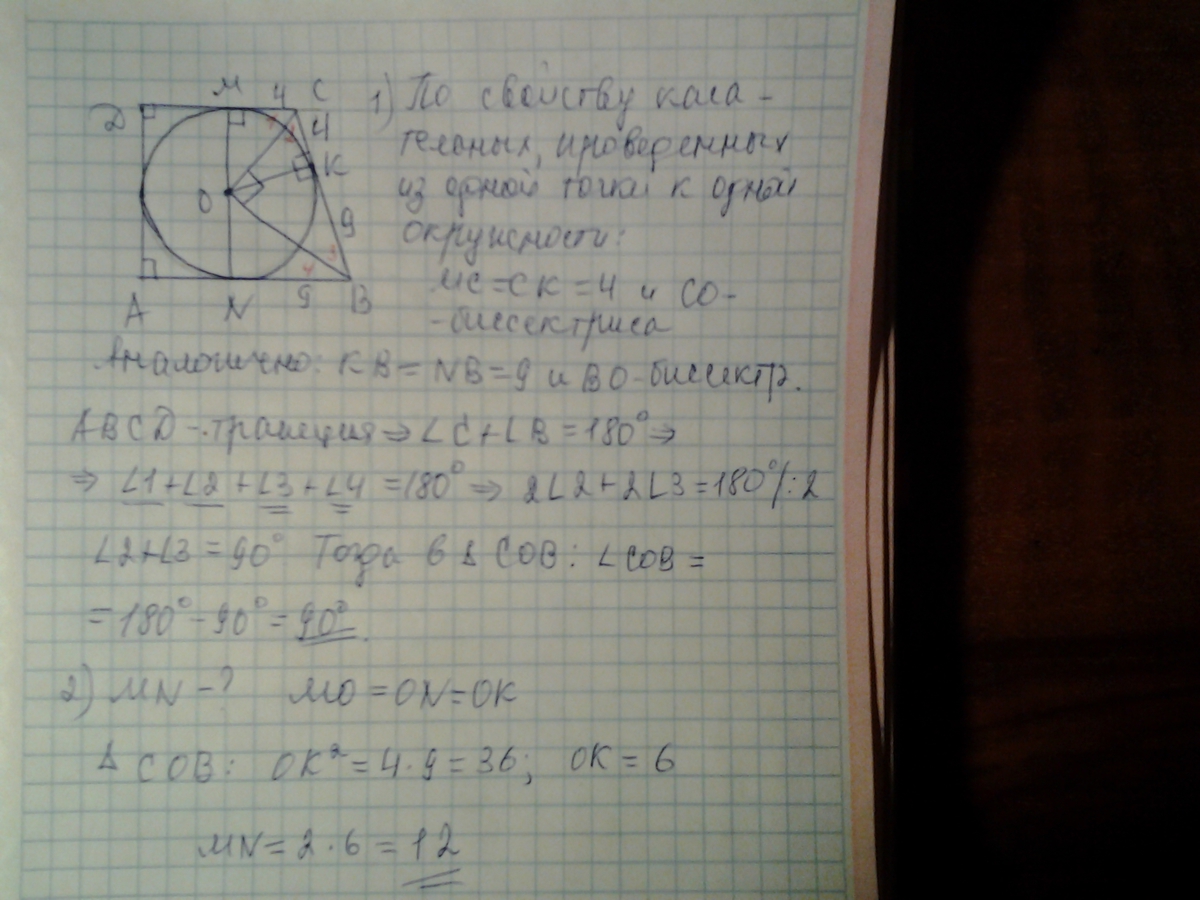 M 4 C
D 4
K
O
9
3
4
A N 9 B
1) По свойству каса-
тельных, проведенных
из одной точки к одной
окружности:
MC = CK = 4 и CO-
-биссектриса
Аналогично: KB = NB = 9 и BO-биссектр.
ABCD - трапеция ⇒ ∠C + ∠B = 180° ⇒
⇒ ∠1 + ∠2 + ∠3 + ∠4 = 180° ⇒ 2∠2 + 2∠3 = 180° /:2
∠2 + ∠3 = 90° Тогда в Δ COB: ∠COB =
= 180° - 90° = 90°.
2) MN - ? MO = ON = OK
Δ COB: OK² = 4 · 9 = 36; OK = 6
MN = 2 · 6 = 12